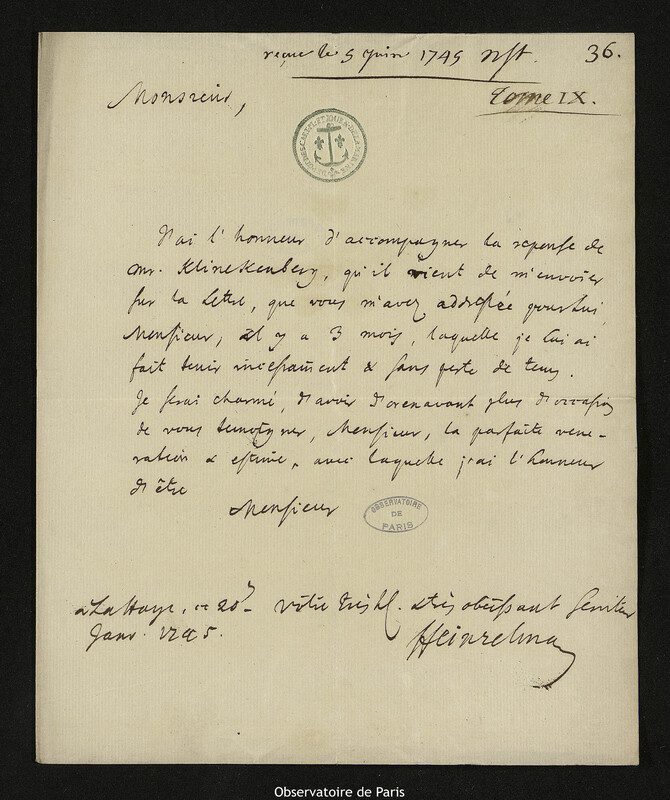 reçue le 5 Juin 1745 n.st. 36.
Tome IX.
Monsieur,
J'ai l'honneur d'accompagner la reponse de
mr. Klinckenberg, qu'il vient de m'envoier
sur la Lettre, que vous m'avez addressée pour lui
Monsieur, il y a 3 mois, laquelle je lui ai
fait tenir incessament & sans perte de tems.
Je serai charmé, d'avoir d'orenavant plus d'occasions
de vous temoigner, Monsieur, la parfaite vene-
ration & estime, avec laquelle j'ai l'honneur
d'être
Monsieur
OBSERVATOIRE
DE
PARIS
à La Haye, ce 20
Janv. 1745.
vôtre très h. & très obeissant serviteur
Heinzelman
Observatoire de Paris